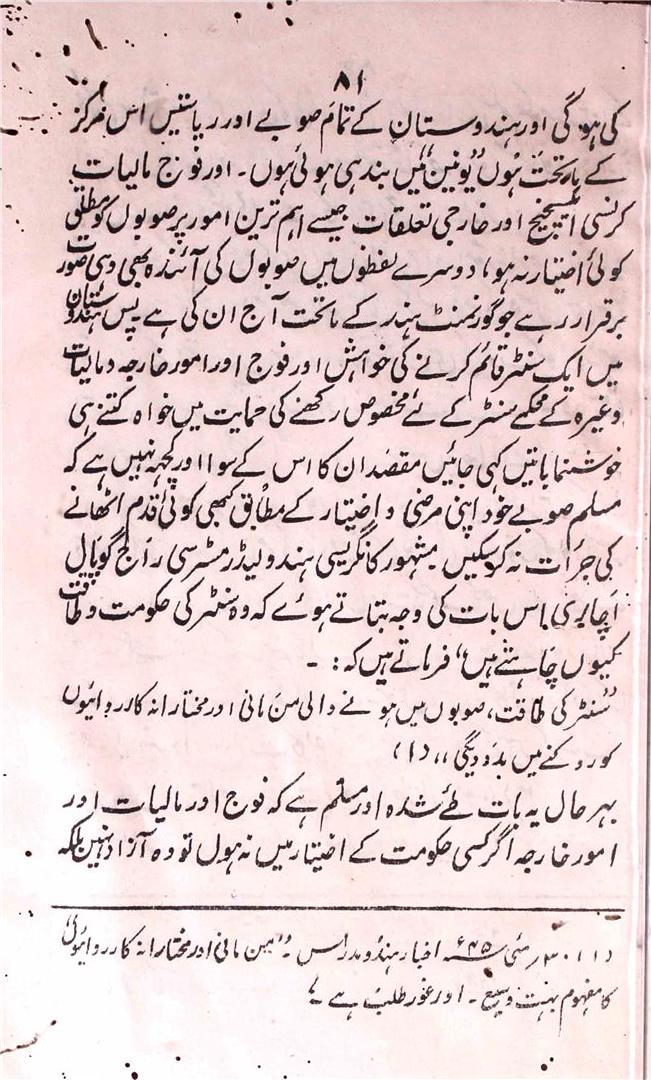 ۸۱
کی ہوگی اور ہندوستان کے تمام صوبے اور ریاستیں اس مرکز
کے ماتحت ہوں "یونین" میں بندہی ہوئی ہوں۔ اور فوج مالیات
کرنسی ایکسچینج اور خارجی تعلقات جیسے اہم ترین امور پر صوبوں کو مطلق
کوئی اختیار نہ ہو، دوسرے لفظوں میں صوبوں کی آئندہ بھی وہی صورت
برقرار رہے جو گورنمنٹ ہند کے ماتحت آج ان کی ہے پس ہندوستان
میں ایک سنٹر قائم کرنے کی خواہش اور فوج اور امور خارجہ و مالیات
وغیرہ کے محکمے سنٹر کے لئے مخصوص رکھنے کی حمایت میں خواہ کتنے ہی
خوشنما باتیں کہی جائیں مقصد ان کا اس کے سوا اور کچہہ نہیں ہے کہ
مسلم صوبے خود اپنی مرضی و اختیار کے مطابق کبھی کوئی قدم اٹھانے
کی جرأت نہ کرسکیں مشہور کانگریسی ہندو لیڈر مسٹر سی راج گوپال
اچاری اس بات کی وجہ بتاتے ہوئے کہ وہ سنٹر کی حکومت و طاقت
کیوں چاہتے ہیں" فرماتے ہیں کہ :۔
"سنٹر کی طاقت، صوبوں میں ہونے والی من مانی اور مختارانہ کارروائیوں
کو روکنے میں مدد دیگی،، (۱)
بہرحال یہ بات طے شدہ اور مسلم ہے کہ فوج اور مالیات اور
امور خارجہ اگر کسی حکومت کے اختیار میں نہ ہوں تو وہ آزاد نہیں بلکہ
(۱) ۳۰؍ مئی ۴۵ء اخبار ہندو مدراس۔ "من مانی اور مختارانہ کارروائیوں"
کا مفہوم بہت وسیع۔ اور غور طلب ہے؟